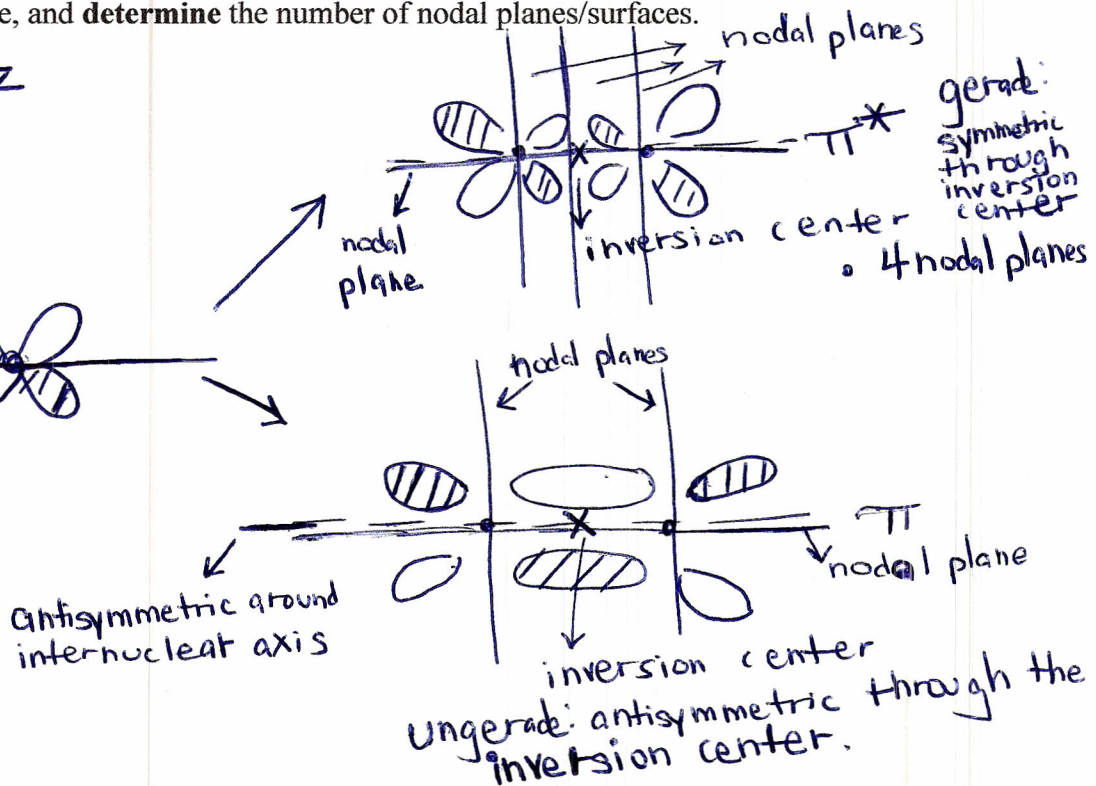 e, and determine the number of nodal planes/surfaces.
z
nodal planes
gerade:
symmetric
through
inversion
center
π*
nodal
plane
inversion center
• 4 nodal planes
nodal planes
π
nodal plane
antisymmetric around
internuclear axis
inversion center
ungerade: antisymmetric through the
inversion center.